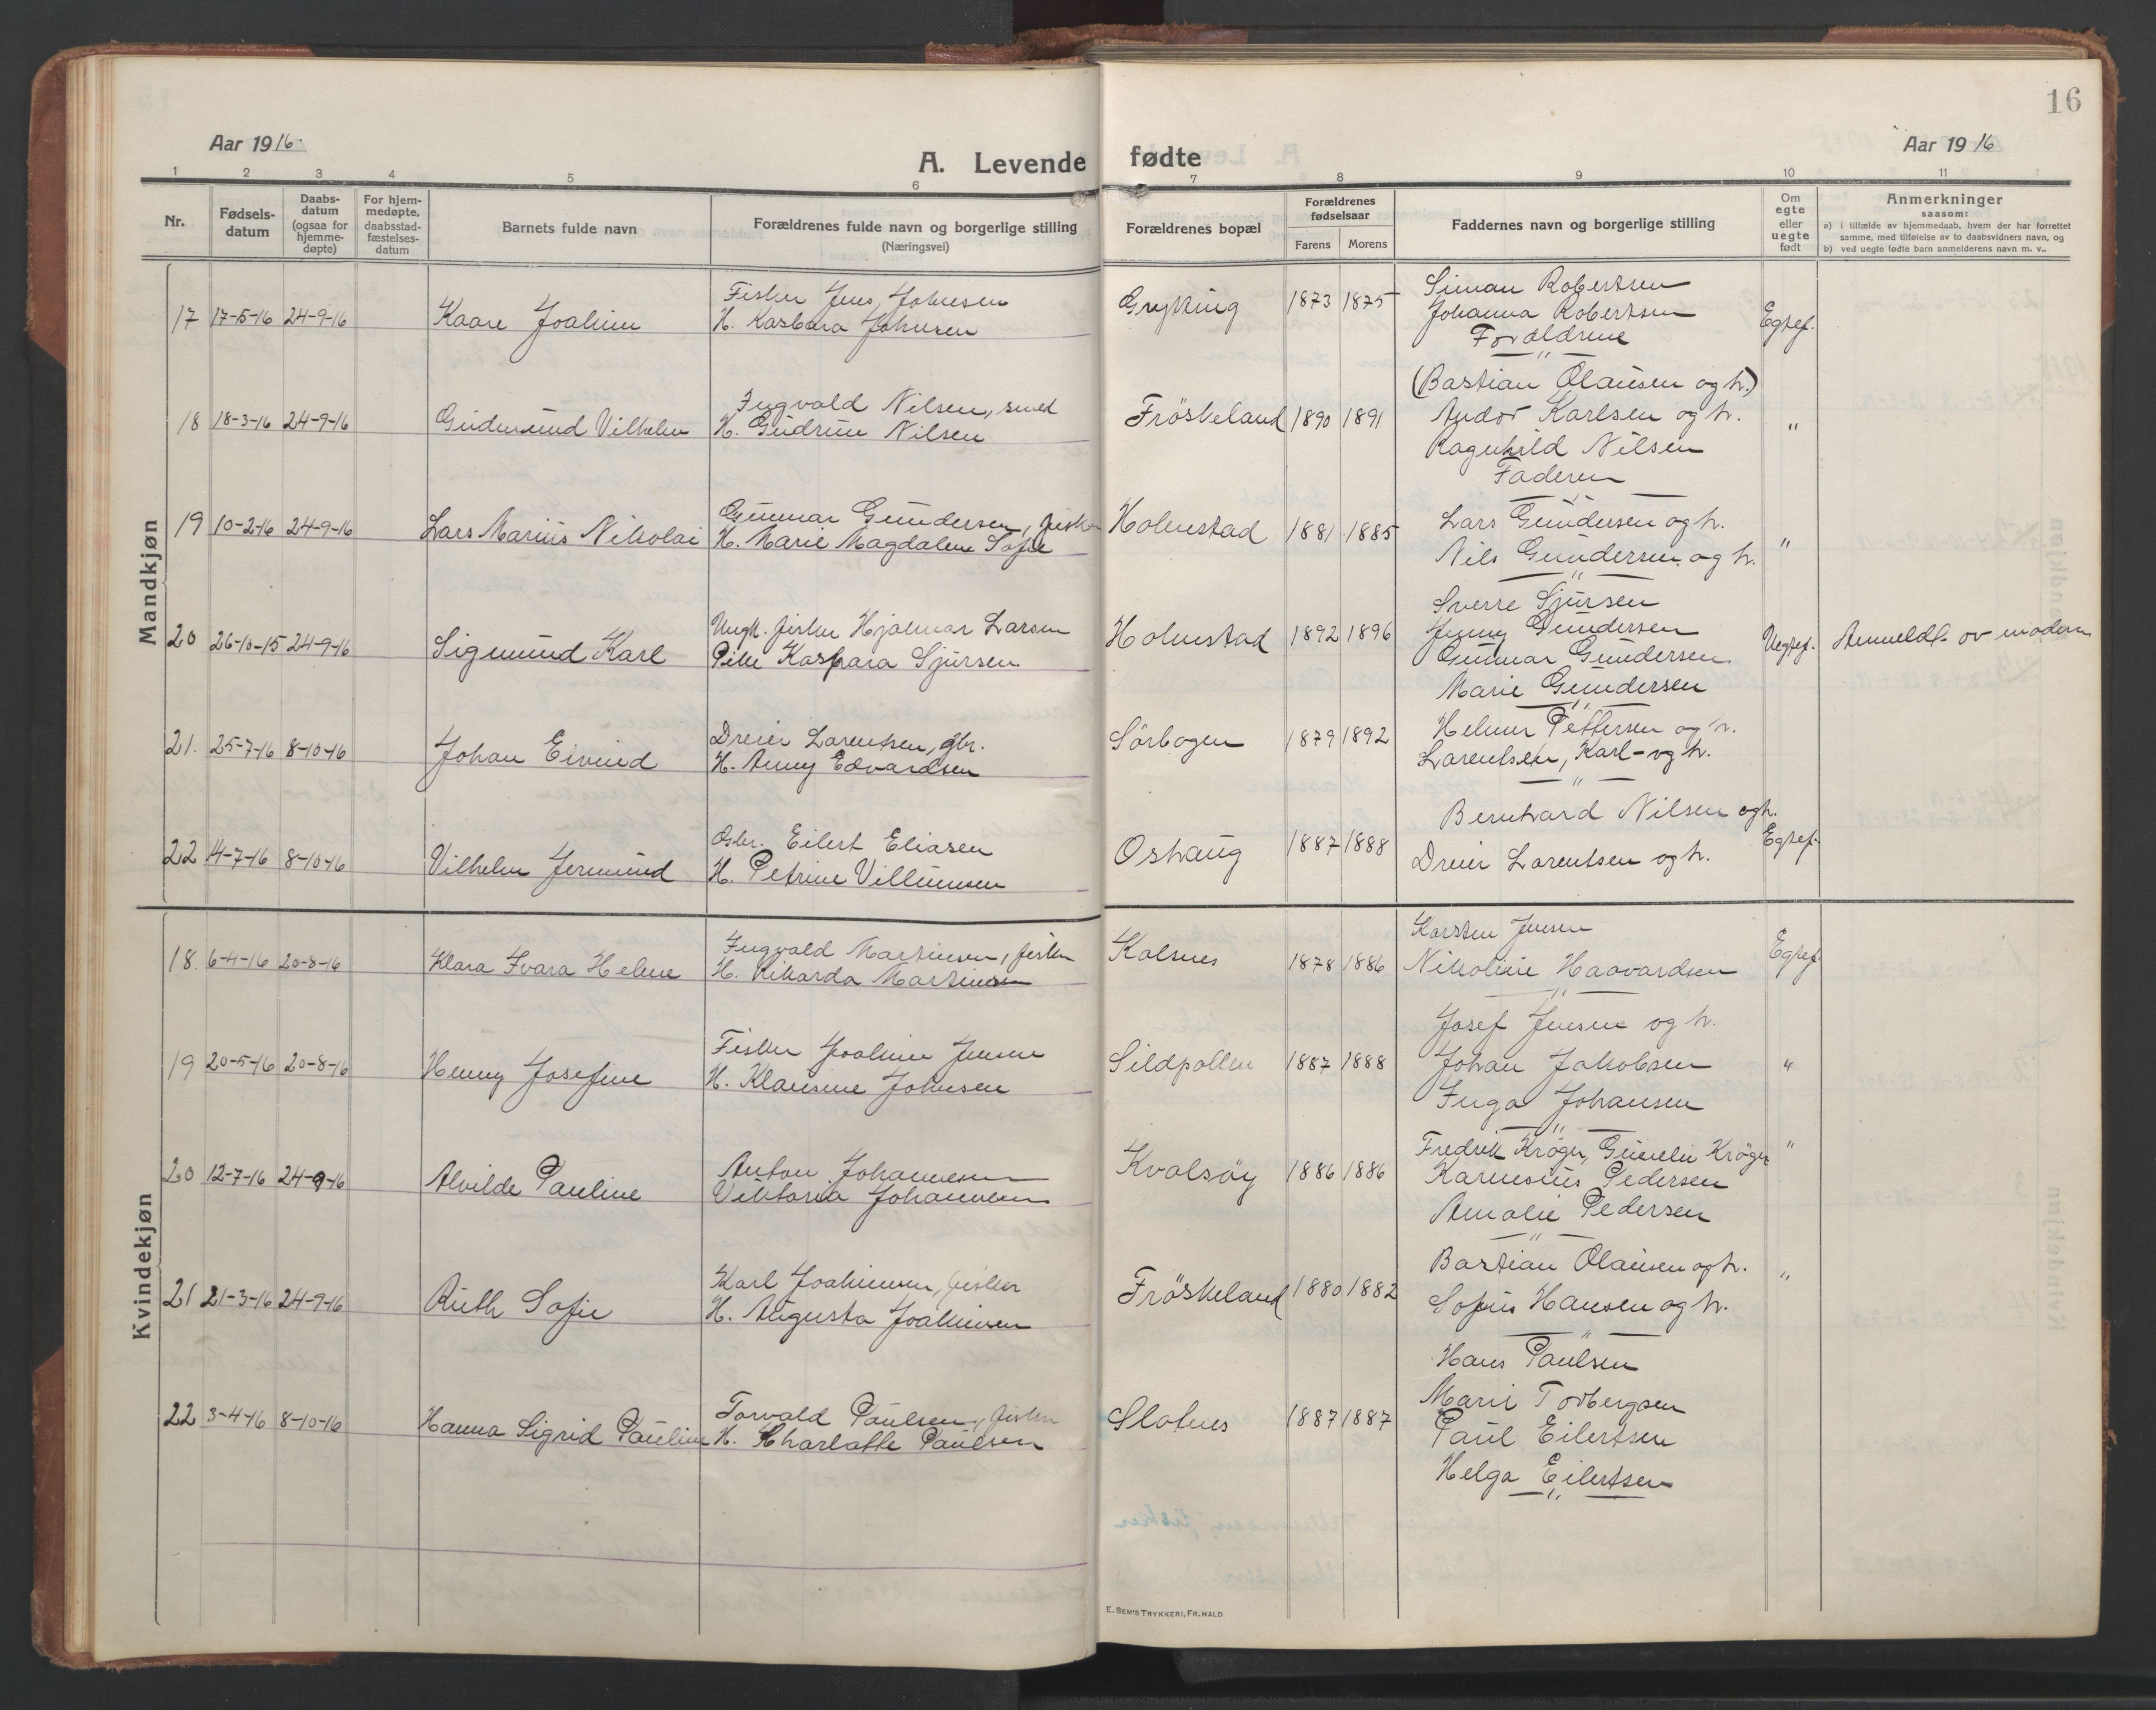 16
Aar 1916.
A. Levende fødte
Aar 1916
1 2 3 4 5 6 7 8 9 10 11
Nr.
Fødsels-
datum
Daabs-
datum
(ogsaa for
hjemme-
døpte)
For hjem-
medøpte,
daabsstad-
fæstelses-
datum
Barnets fulde navn
Forældrenes fulde navn og borgerlige stilling
(Næringsvei)
Forældrenes bopæl
Forældrenes
fødselsaar
Farens Morens
Faddernes navn og borgerlige stilling
Om
egte
eller
uegte
født
Anmerkninger
saasom:
a) i tilfælde av hjemmedaab, hvem der har forrettet
samme, med tilføielse av to daabsvidners navn, og
b) ved uegte fødte barn anmelderens navn m. v..
Mandkjøn
17 17-5-16 24-9-16 Kaare Joakim
Fisker Jens Johnsen
H. Kasbara Johnsen
Grytting 1873 1875
Simon Robertsen
Johanna Robertsen
Forældrene
Egtef.
18 18-3-16 24-9-16 Gudmund Vilhelm
Ingvald Nilsen, smed
H. Gudrun Nilsen
Fröskeland 1890 1891
(Bastian Olausen og h.)
Andor Karlsen og h.
Ragnhild Nilsen
Faderen
"
19 10-2-16 24-9-16 Lars Marius Nikolai
Gunnar Gundersen, fisker
H. Marie Magdalene Sofie
Holmstad 1881 1885
Lars Gundersen og h.
Nils Gundersen og h.
"
20 26-10-15 24-9-16 Sigmund Karl
Ungk. fisker Hjalmar Larsen
Pike Kaspara Sjursen
Holmstad 1892 1896
Sverre Sjursen
Jenny Gundersen
Gunnar Gundersen
Marie Gundersen
Uegtef. Anmeldt av moderen
21. 25-7-16 8-10-16 Johan Eivind
Dreier Larentsen, gbr.
H. Anny Edvardsen
Sörbogen 1879 1892
Helmer Pettersen og h.
Larentsen, Karl - og h.
"
22 14-7-16 8-10-16 Vilhelm Jermund
Gbr. Eilert Eliasen
H. Petrine Villumsen
Oshaug 1887 1888
Bernhard Nilsen og h.
Dreier Larentsen og h.
Egtef.
Kvindekjøn
18. 6-4-16 20-8-16 Klara Ivara Helene
Ingvald Martinsen, fisker
H. Rikarda Martinsen
Kalsnes 1878 1886
Karsten Jensen
Nikoline Haavardsen
Egtef.
19 20-5-16 20-8-16 Henny Josefine
Fisker Joakim Jensen
H. Klausine Johnsen
Sildpollen 1887 1888
Josef Jensen og h.
Johan Jakobsen
Inga Johansen
"
20 12-7-16 24-9-16 Alvilde Pauline
Anton Johannesen
Viktoria Johannesen
Kvalsöy 1886 1886
Fredrik Kröger, Gunelie Kröger
Karmsius Pedersen
Amalie Pedersen
"
21 21-3-16 24-9-16 Ruth Sofie
Karl Joakimsen, fisker
H. Augusta Joakimsen
Fröskeland 1880 1882
Bastian Olausen og h.
Sofus Hansen og h.
"
22 3-4-16 8-10-16 Hanna Sigrid Pauline
Torvald Paulsen, fisker
H. Charlotte Paulsen
Slotnes 1887 1887
Hans Paulsen
Marie Torbergsen
Paul Eilertsen
Helga Eilertsen
"
E. SEM'S TRYKKERI, FR.HALD